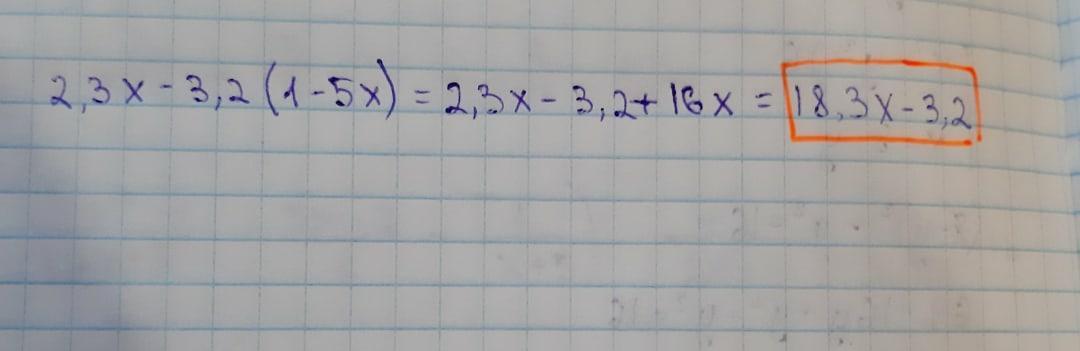 2,3x - 3,2(1-5x) = 2,3x - 3,2 + 16x = 18,3x - 3,2